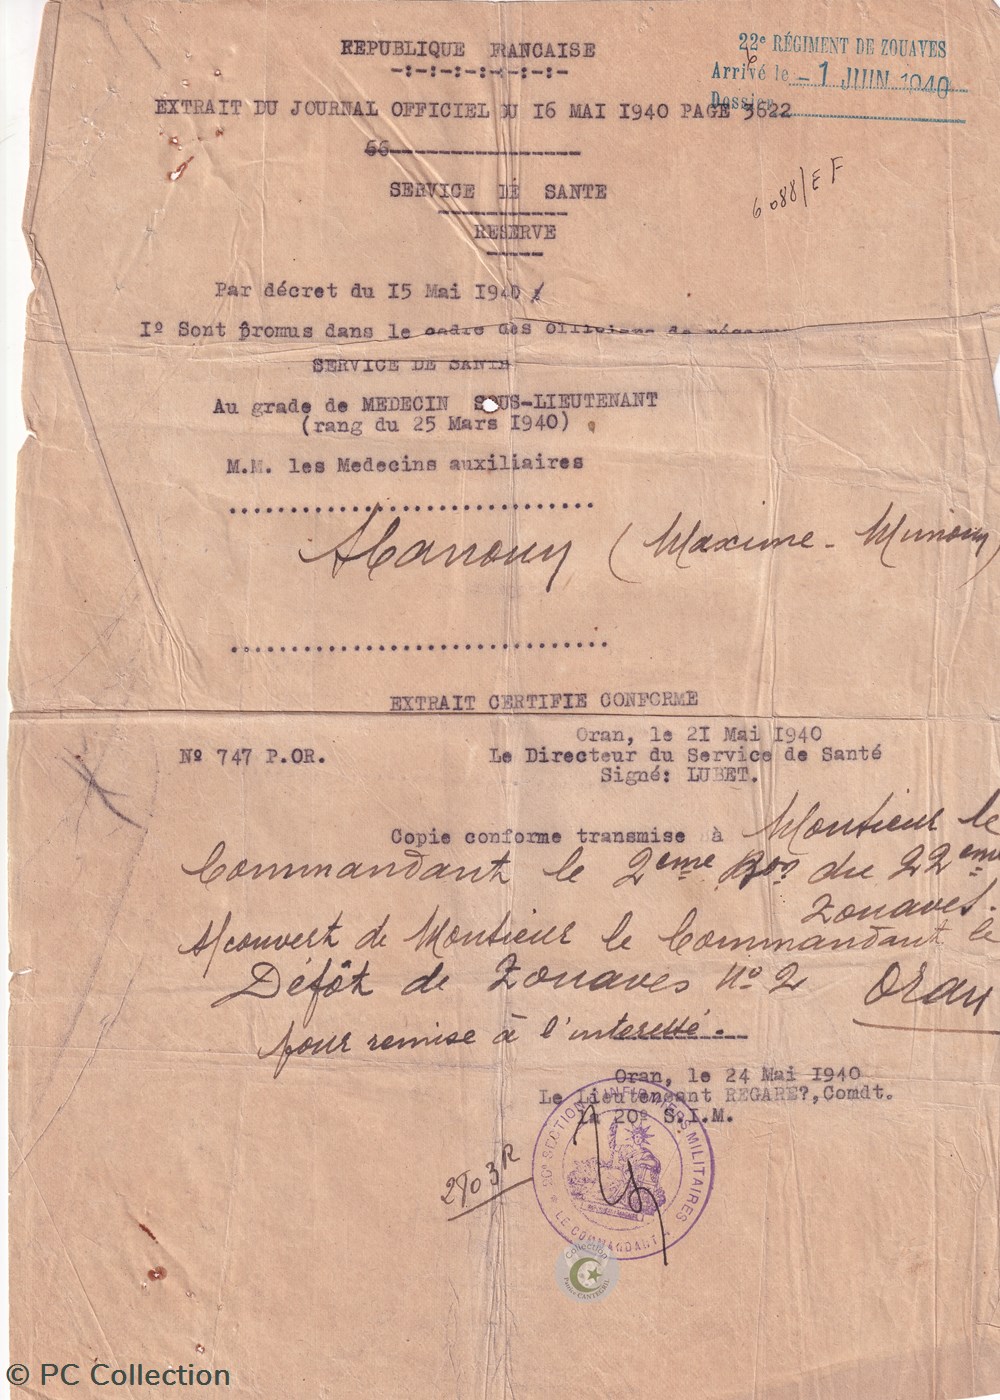 REPUBLIQUE FRANCAISE
-:-:-:-:-:-:-
22e RÉGIMENT DE ZOUAVES
Arrivé le - 1 JUIN 1940
Dossier
EXTRAIT DU JOURNAL OFFICIEL DU 16 MAI 1940 PAGE 3622
66
6088/EF
SERVICE DE SANTE
RESERVE
Par décret du 15 Mai 1940
I° Sont promus dans le cadre des officiers de réserve
SERVICE DE SANTE
Au grade de MEDECIN SOUS-LIEUTENANT
(rang du 25 Mars 1940)
M.M. les Medecins auxiliaires
..............................
(Maxime - Mimoun)
...............................
EXTRAIT CERTIFIE CONFORME
Oran, le 21 Mai 1940
N° 747 P.OR.
Le Directeur du Service de Santé
Signé: LUBET.
Copie conforme transmise à Monsieur le
Commandant le 2eme Bon du 22eme
Zouaves.
A/couvert de Monsieur le Commandant le
Dépôt de Zouaves n° 2 Oran
pour remise à l'interessé.
Oran, le 24 Mai 1940
Le Lieutengant REGARE?, Comdt.
la 20° S.I.M.
20e SECTION D'INFIRMIERS MILITAIRES
LE COMMANDANT
Collection
CANTEGRIL
© PC Collection